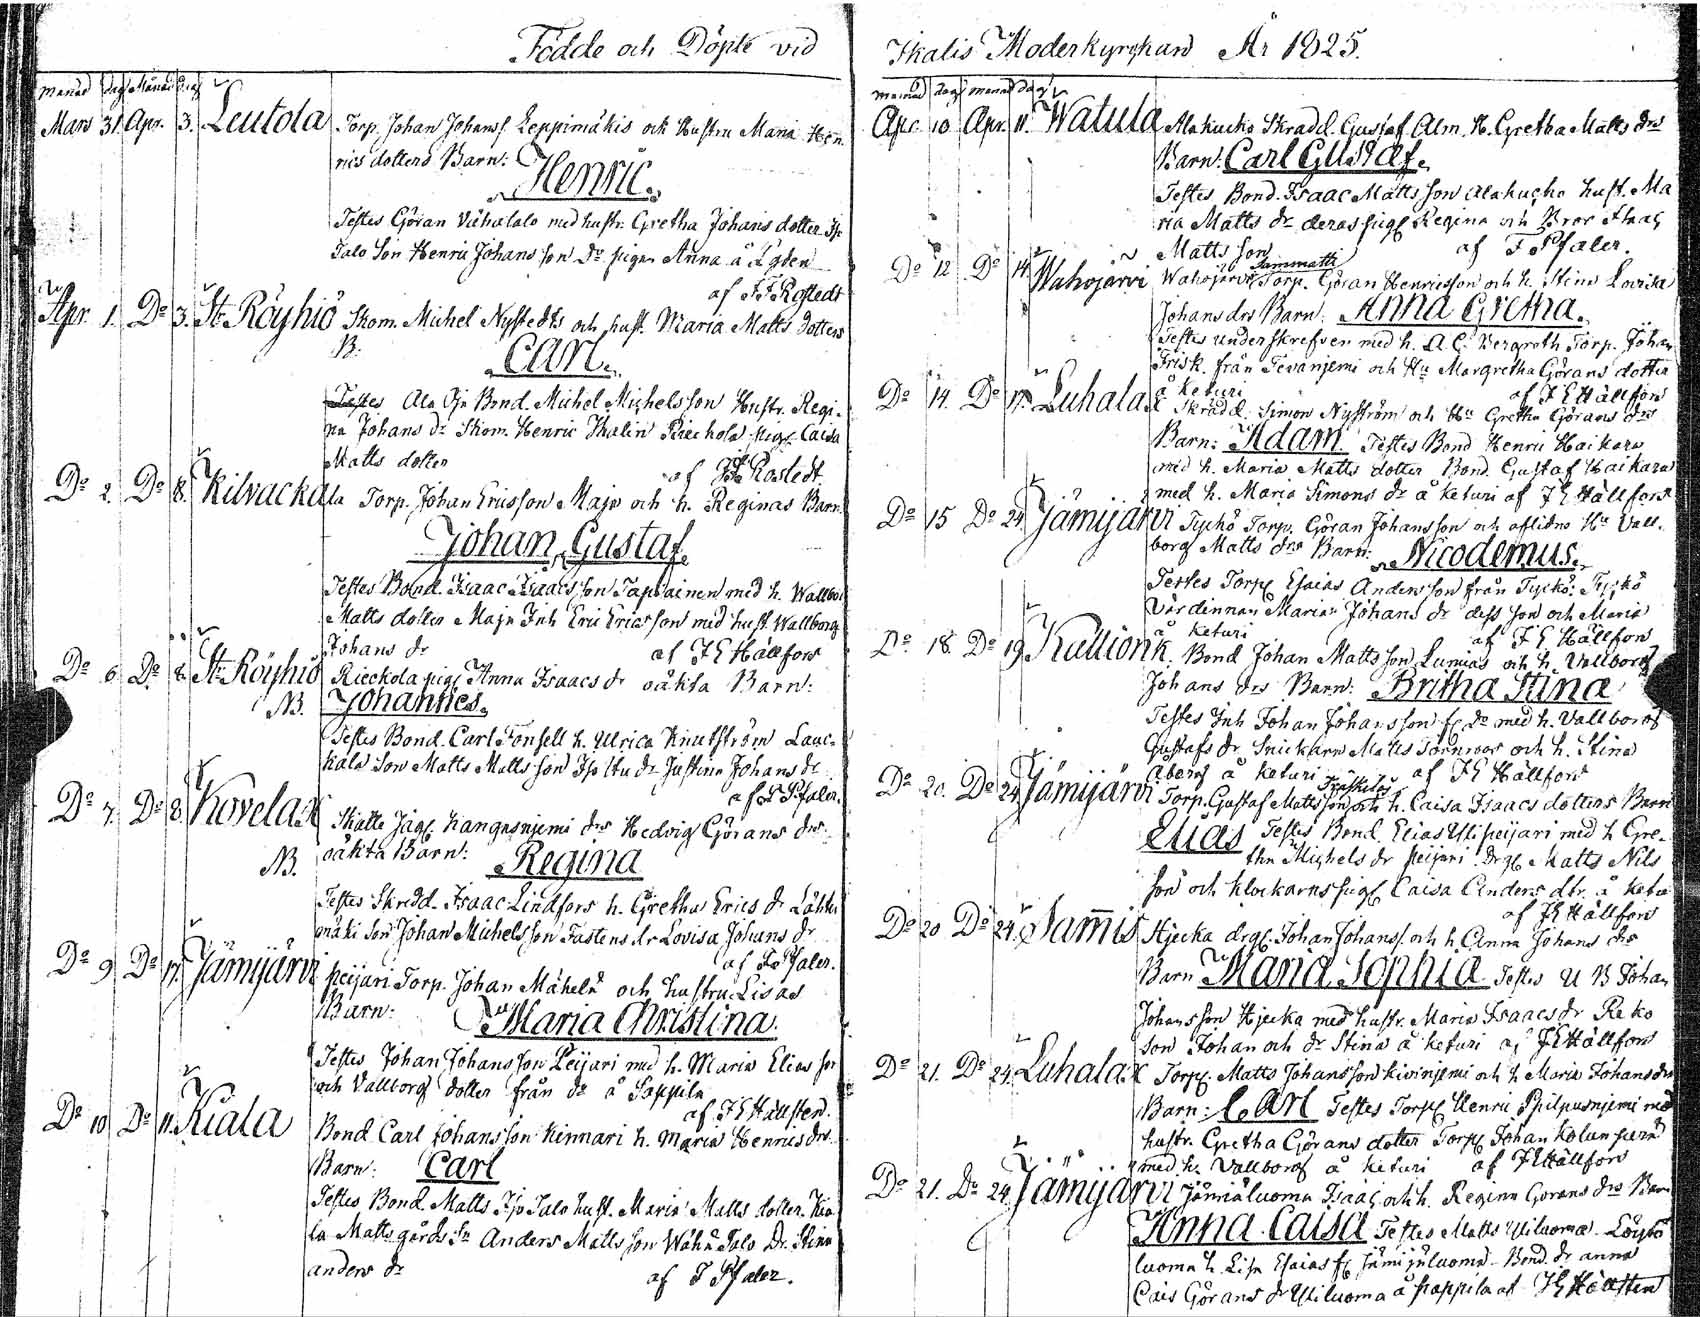 Födde och Döpte vid
Månad dag Månad dag
Mars 31 Apr. 3. Leutola Torp. Johan Johanss. Leppimäkis och Hustru Maria Hen-
rics dotters Barn:
Henric.
Testes Göran Vähätalo med hustr. Gretha Johans dotter
Talo Son Henric Johansson Dr pigan Anna å
af F. F. Rostedt
Apr. 1. Do 3. St. Röyhiö Skom. Michel Nystedts och hust. Maria Matts dotters
B.
Carl.
Testes Ala Bond. Michel Michelsson Hustr. Regi-
na Johans dr Skom. Henric Thalin pig. Caisa
Matts dotter
af F. F. Rostedt.
Do 2. Do 8. Kilvackala Torp. Johan Ericsson Maja och h. Reginas Barn.
Johan Gustaf.
Testes Bond. Isaac Isaacsson Tapiainen med h. Wallbor
Matts dotter Maja Inh Eric Ericsson med hust. Wallborg
Johans dr
af F E Hällfors
Do 6. Do 8. St. Röyhiö Rieckola pig. Anna Isaacs dr oäkta Barn:
NB. Johannes.
Testes Bond. Carl Fonsell h. Ulrica Knutström
kala Son Matts Mattsson dr Justina Johans dr
af F Pfaler.
Do 7. Do 8. Kovelax Skatte Jäg. Kangasnjemi drs Hedvig Görans drs
NB. oäkta Barn:
Regina
Testes Skrädd. Isaac Lindfors h. Gretha Erics dr
mäki Son Johan Michelsson dr Lovisa Johans dr
af F Pfaler.
Do 9 Do 17. Jämijärvi peijari Torp. Johan Mähelä och hustru Lisas
Barn:
Maria Christina.
Testes Johan Johansson Peijari med h. Maria Elias
och Vallborg dotter från do å Soppila
af J E Hällsten.
Do 10 Do 11. Kiala Bond Carl Johansson Kinnari h. Maria Henrics drs.
Barn: Carl
Testes Bond. Matts Iso Talo hust. Maria Matts dotter. Kia-
la Matts gårds Sn Anders Mattsson Wähä Talo Dr. Stina
anders dr
af F Pfaler.
Ikalis Moderkyrkan År 1825.
månad dag månad dag
Apr. 10 Apr. 11. Watula Alakucko Skrädd. Gustaf Alm. H. Gretha Matts drs
Barn: Carl Gustaf.
Testes Bond. Isaac Mattsson Alakucko hust. Ma
ria Matts dr deras pig. Regina och Bror Isaac
Mattsson
af F Pfaler.
Do 12 Do 14. Wahojärvi Wahojärvi Sammatti Torp. Göran Henricsson och h. Stina Lovisa
Johans drs Barn: Anna Gretha.
Testes underskrefven med h. A. C. Bergroth Torp. Johan
Frisk från Tevanjemi och Hu Margretha Görans dotter
å keturi
af F E Hällfors
Do 14. Do 17. Luhalax Skrädd. Simon Nyström och Hu Gretha Görans drs
Barn: Adam. Testes Bond Henric Haikara
med h. Maria Matts dotter Bond. Gustaf Haikara
med h. Maria Simons dr å keturi af F E Hällfors
Do 15 Do 24. Jämijärvi Tyckö Torp. Göran Johansson och aflidne Hu Vall-
borg Matts drs Barn: Nicodemus.
Testes Torp. Esaias Andersson från Tyckö: Tyckö
Värdinnan Maria Johans dr dess son och Maria
å keturi
af F E Hällfors
Do 18. Do 19. Kallionk. Bond Johan Mattsson Lumias och h. Vallborg
Johans drs Barn: Britha Stina
Testes Inh Johan Johansson do med h. Vallborg
Gustafs dr. Snickarn Matts Törnroos och h. Stina
Åberg å keturi
af F E Hällfors
Do 20. Do 24. Jämijärvi Torp. Gustaf Mattsson och h. Caisa Isaacs dotters Barn
Elias Testes Bond Elias Ylipeijari med h Gre-
tha Michels dr peijari. Drg. Matts Nils
son och klockarns pig. Caisa Anders dtr. å ketu
af F E Hällfors
Do 20 Do 24. Sammis Hjecka drg. Johan Johanss. och h Anna Johans drs
Barn Maria Sophia Testes U B Johan
Johansson Hjecka med hustr. Maria Isaacs dr Reko
son Johan och dr Stina å keturi af F E Hällfors
Do 21. Do 24. Luhalax Torp. Matts Johansson Kivinjemi och h Maria Johans drs
Barn: Carl Testes Torp. Henric Pilpusnjemi med
hustr. Gretha Görans dotter Torp. Johan
med h. Vallborg å keturi af F E Hällfors
Do 21. Do 24. Jämijärvi Jämiäluoma Isaac och h. Regina Görans drs Barn
Anna Caisa Testes Matts Uiluoma
luoma h. Lisa Esaias Jämijäluoma Bond. dr anna
Cais Görans dr Uiluoma å soppila af J E Hällsten